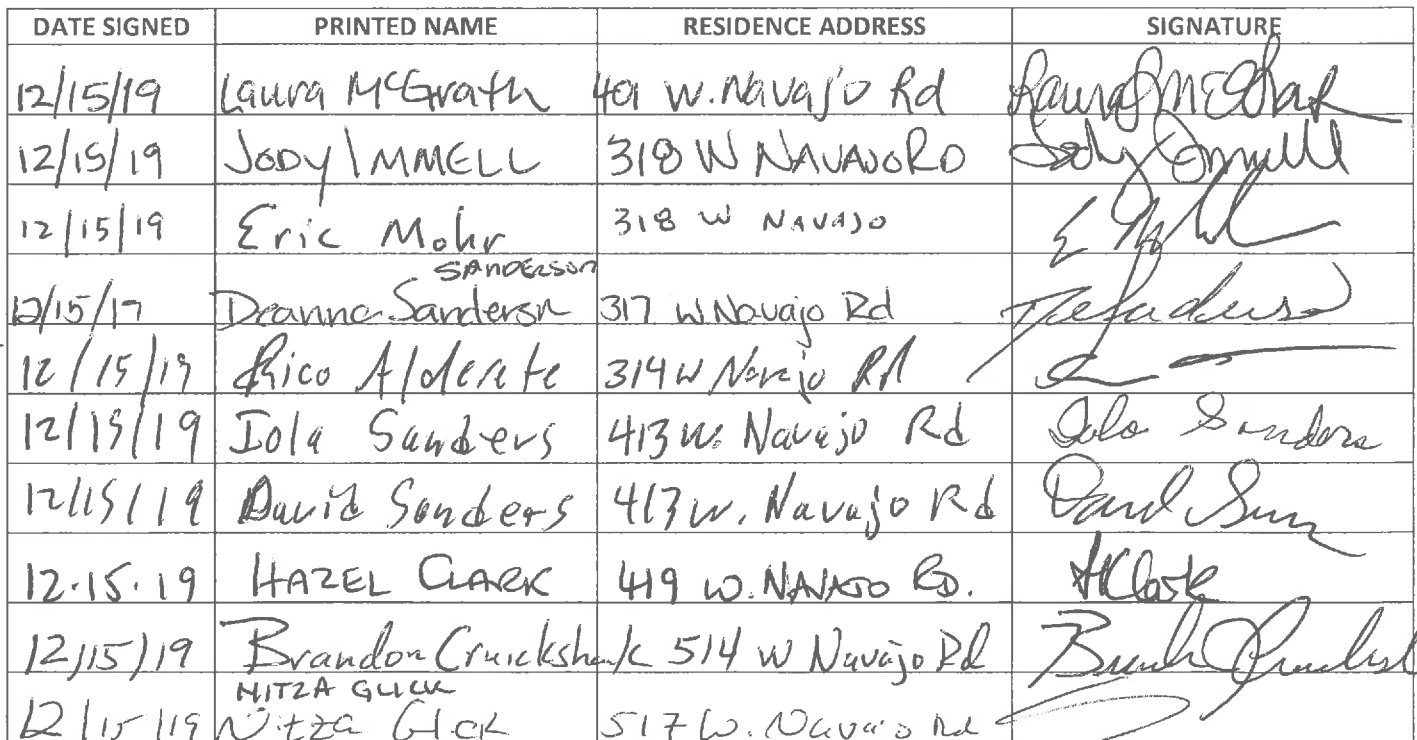 DATE SIGNED PRINTED NAME RESIDENCE ADDRESS SIGNATURE
12/15/19 Laura McGrath 401 W. Navajo Rd Laura McGrath
12/15/19 JODY IMMELL 318 W NAVAJO RD Jody Immell
12/15/19 Eric Mohr 318 W NAVAJO E
SANDERSON
12/15/17 Deanna Sanderson 317 W Navajo Rd
12/15/19 Rico Alderete 314 W Navajo Rd
12/15/19 Iola Sanders 413 W. Navajo Rd Iola Sanders
12/15/19 David Sanders 413 W. Navajo Rd David
12.15.19 HAZEL CLARK 419 W. NAVAJO RD. HClark
12/15/19 Brandon Cruickshank 514 W Navajo Rd
NITZA GLICK
12/15/19 Nitza Glick 517 W. Navajo Rd